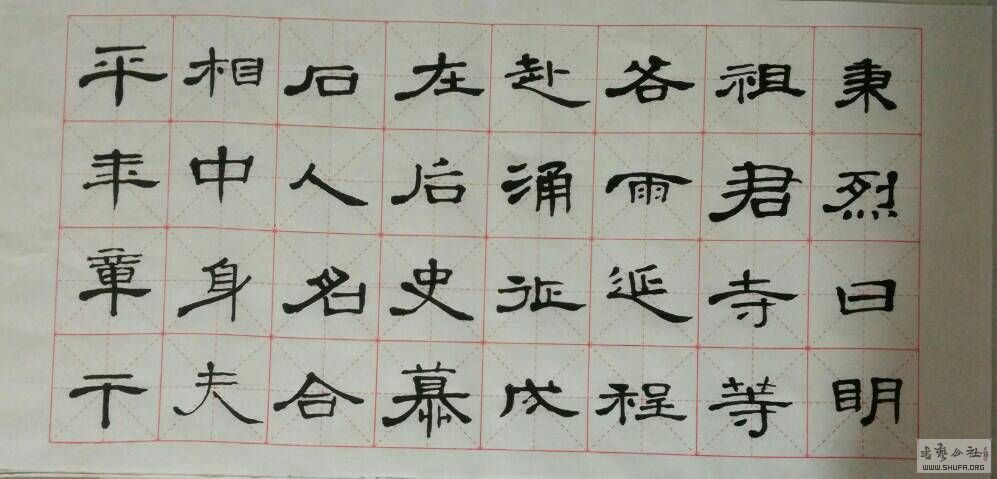 秉烈日明
祖君寺等
各雨延程
赴涌征成
在后史慕
石人名合
相中身夫
平年章干
书艺公社
WWW.SHUFA.ORG